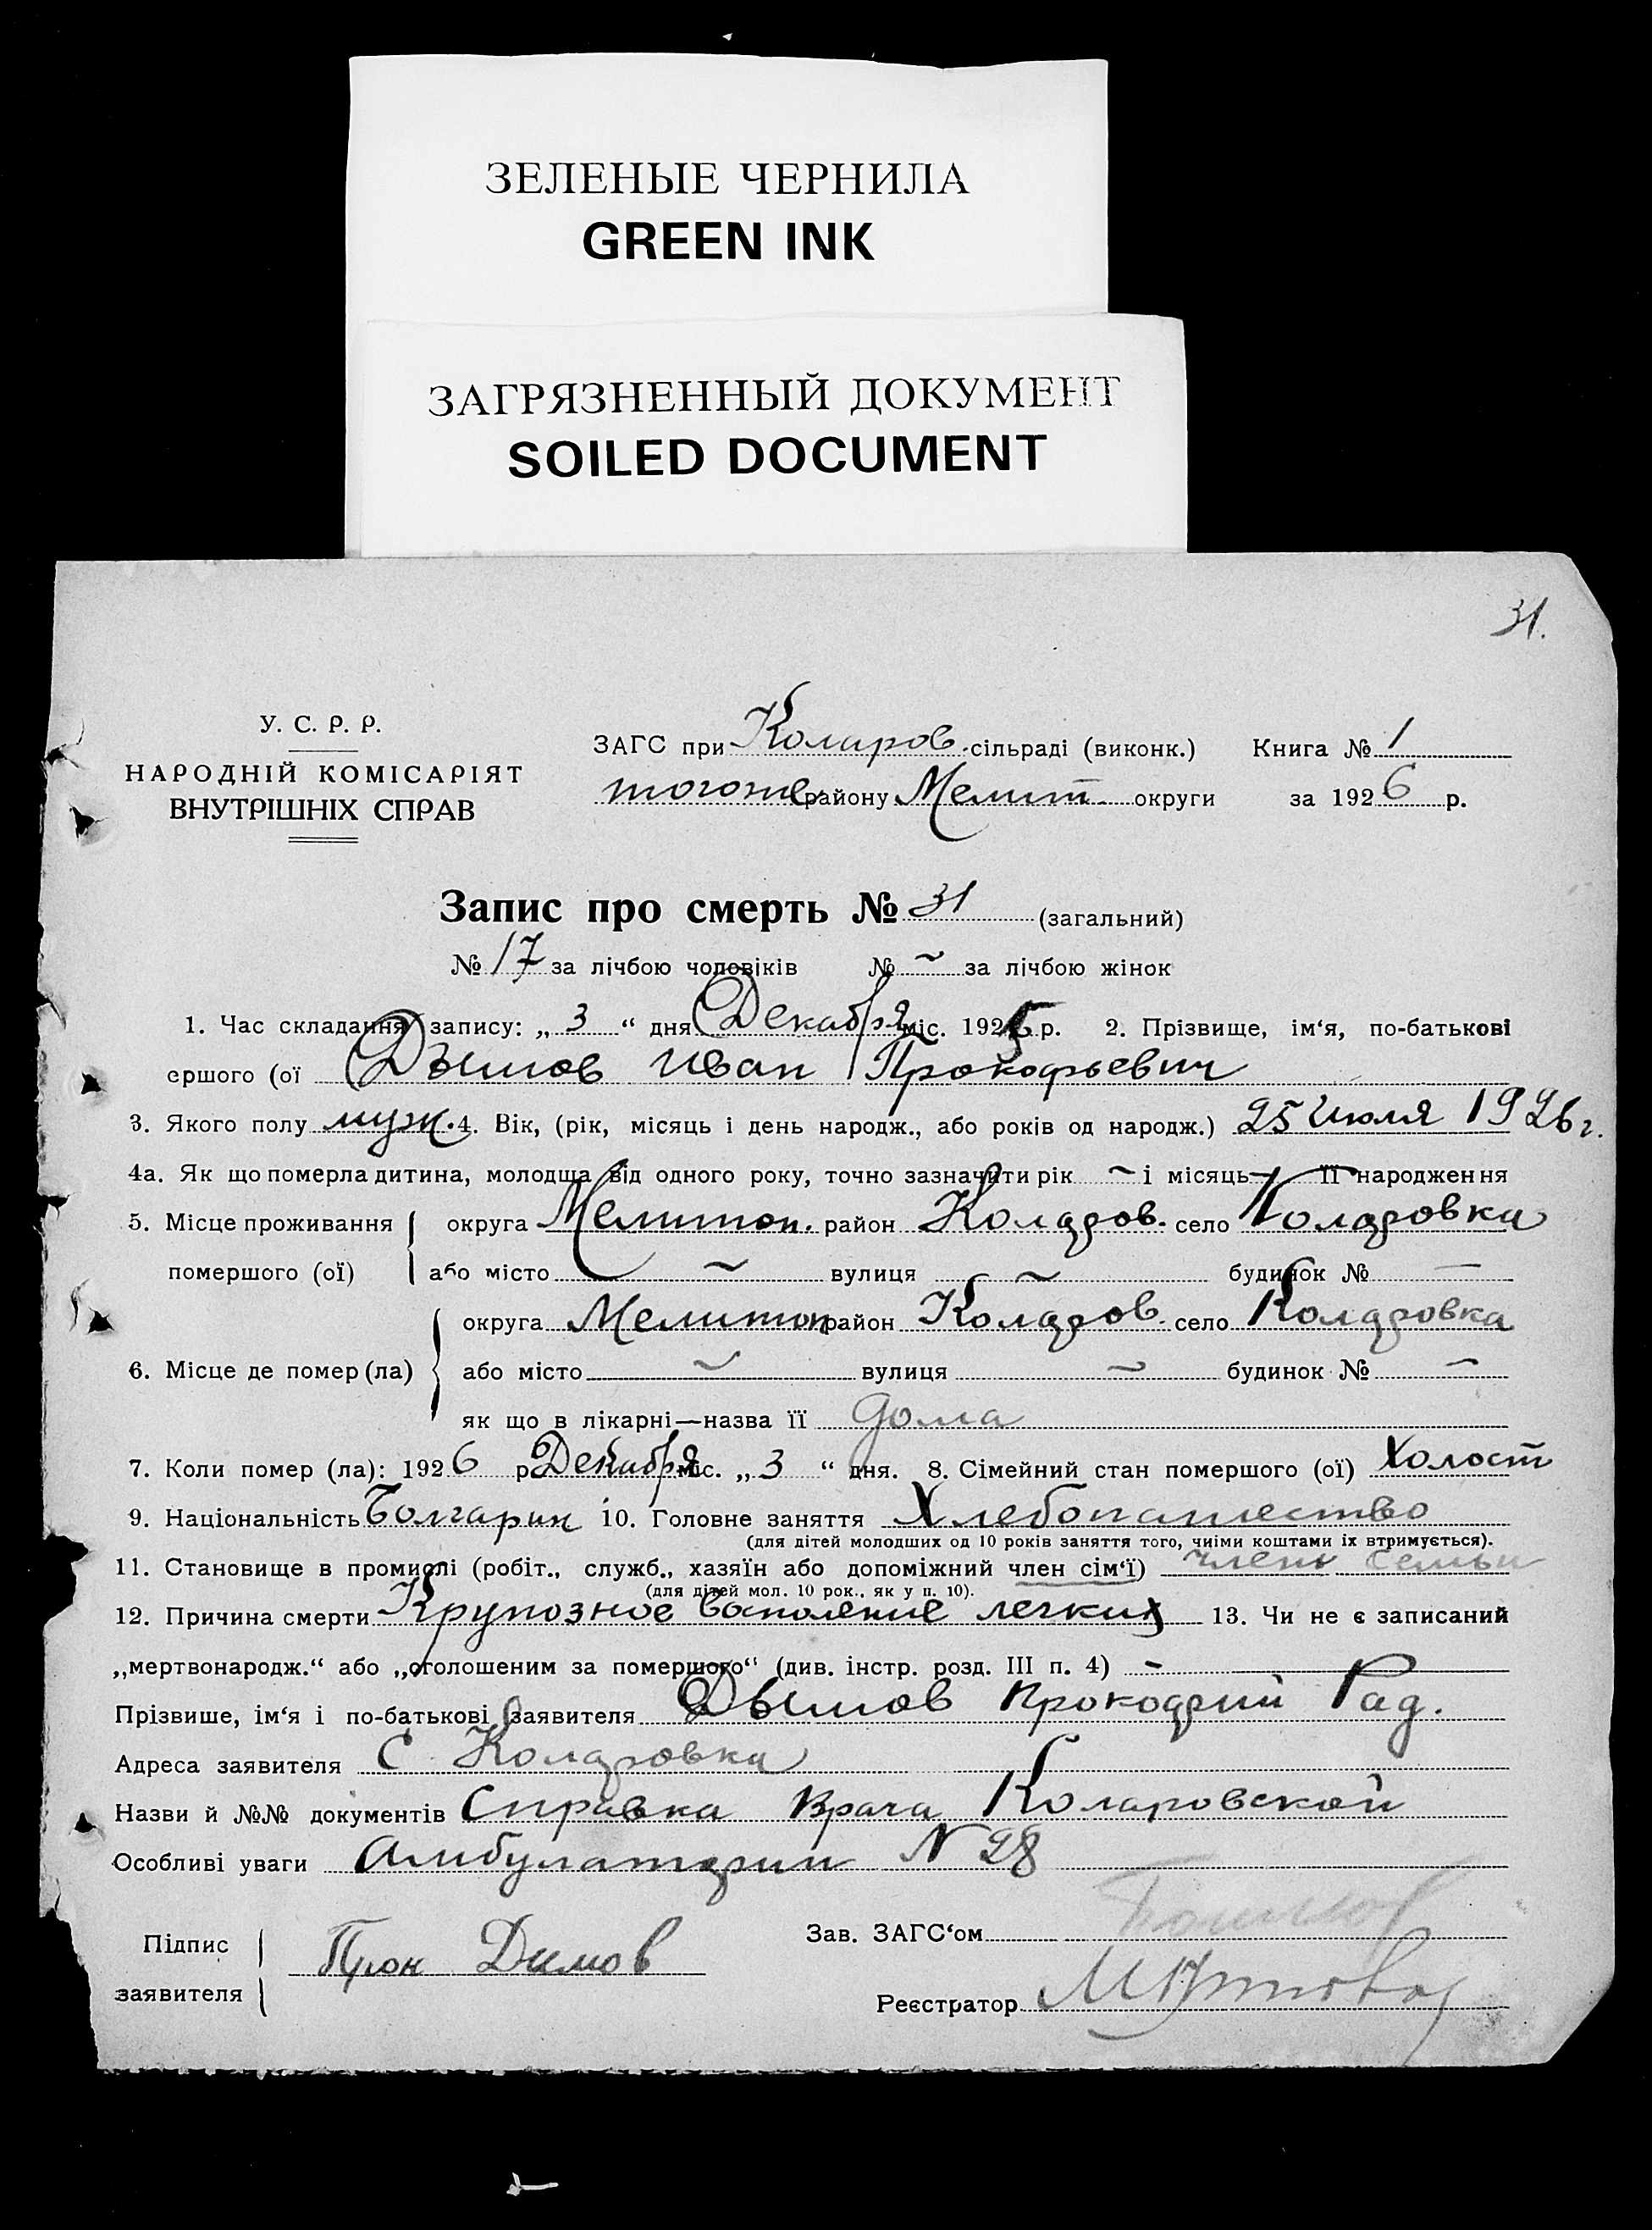 ЗЕЛЕНЫЕ ЧЕРНИЛА
GREEN INK
ЗАГРЯЗНЕННЫЙ ДОКУМЕНТ
SOILED DOCUMENT
31.
У. С. Р. Р.
НАРОДНІЙ КОМІСАРІЯТ
ВНУТРІШНІХ СПРАВ
ЗАГС при Коларов. сільраді (виконк.) Книга № 1
тогоже району Мелит. округи за 1926 р.
Запис про смерть № 31 (загальний)
№ 17 за лічбою чоловіків № ~ за лічбою жінок
1. Час складання запису: „ 3 “ дня Декабря міс. 192 р. 2. Прізвище, ім‘я, по-батькові
ершого (ої Дымов Иван Прокофьевич
3. Якого полу муж. 4. Вік, (рік, місяць і день народж., або років од народж.) 25 Июля 1926 г.
4а. Як що померла дитина, молодша від одного року, точно зазначити рік ~ і місяць ~ її народження
5. Місце проживання округа Мелитоп. район Коларов. село Коларовка
помершого (ої) або місто ~ вулиця ~ будинок № —
округа Мелитоп район Коларов. село Коларовка
6. Місце де помер (ла) або місто ~ вулиця ~ будинок № ~
як що в лікарні—назва її дома
7. Коли помер (ла): 1926 р Декабря міс. „ 3 “ дня. 8. Сімейний стан помершого (ої) Холост
9. Національність Болгарин 10. Головне заняття Хлебопашество
(для дітей молодших од 10 років заняття того, чиїми коштами їх втримується).
11. Становище в промислі (робіт., служб., хазяїн або допоміжний член сім‘ї) член семьи
(для дітей мол. 10 рок., як у п. 10).
12. Причина смерти Крупозное воспаление легких 13. Чи не є записаний
„мертвонародж.“ або „оголошеним за помершого“ (див. інстр. розд. III п. 4) –
Прізвише, ім‘я і по-батькові заявителя Дымов Прокофий Рад.
Адреса заявителя С Коларовка
Назви й №№ документів Справка Врача Коларовской
Особливі уваги Амбулатории N 28
Підпис
заявителя
Прок Димов
Зав. ЗАГС‘ом
Реєстратор